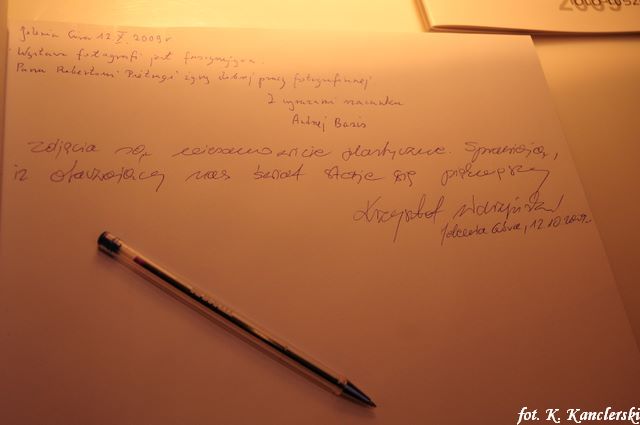 Jelenia Góra 12 X. 2009 r
Wystawa fotografi jest fascynująca.
Panu Robertowi życzę dobrej pracy fotograficznej
Z wyrazami szacunku
Andrzej Basis
Zdjęcia są niesamowicie plastyczne. Sprawiają,
iż otaczający nas świat staje się piękniejszy
Krzysztof
Jelenia Góra, 12.10.2009r.
fot. K. Kanclerski